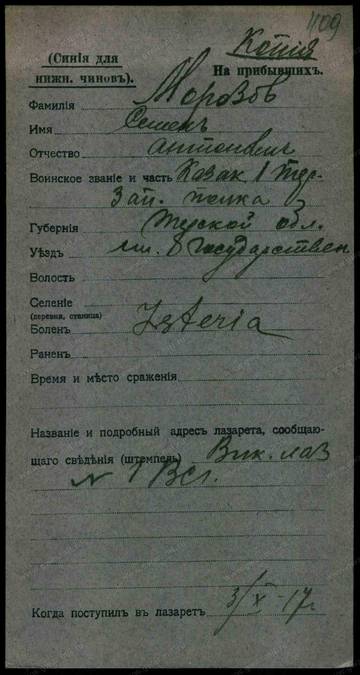 1109
Копія
(Синія для
нижн. чиновъ).
На прибывшихъ.
Фамилія Морозов
Имя Семенъ
Отчество Антонович
Воинское званіе и часть Казак 1 Тер.
Зап. полка
Губернія Терской обл.
Уѣздъ ст. Государствен
Волость
Селеніе
(деревня, станица)
Боленъ Isteria
Раненъ
Время и мѣсто сраженія
Названіе и подробный адресъ лазарета, сообщаю-
щаго свѣдѣнія (штемпель) Вик. лаз
N 1 Всг.
Когда поступилъ въ лазаретъ 3/X - 17 г